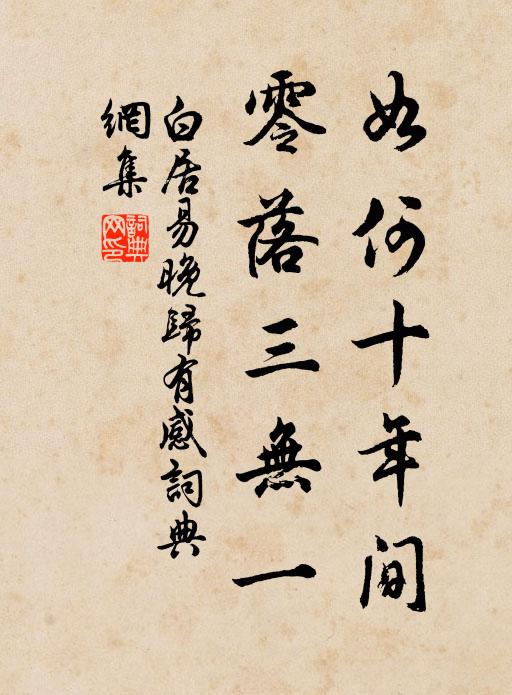 如何十年间
零落三無一
白居易晚歸有感詞典
網集
詞典
网印